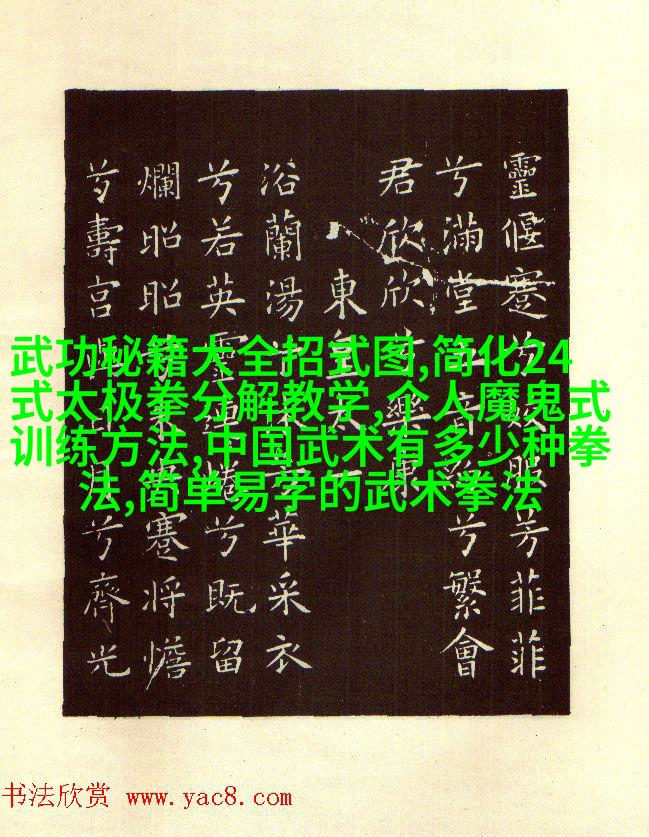 靈偃蹇兮姣服芳菲菲
兮滿堂五音紛兮繁會
君欣欣兮樂康
東皇太一
浴蘭湯兮沐芳華采衣
兮若英靈連蜷兮既留
爛昭昭兮未央蹇將憺
兮壽宮與日月兮齊光
武功秘籍大全招式图,简化24
式太极拳分解教学,个人魔鬼式
训练方法,中国武术有多少种拳
法,简单易学的武术拳法
书法欣赏 www.yac8.com